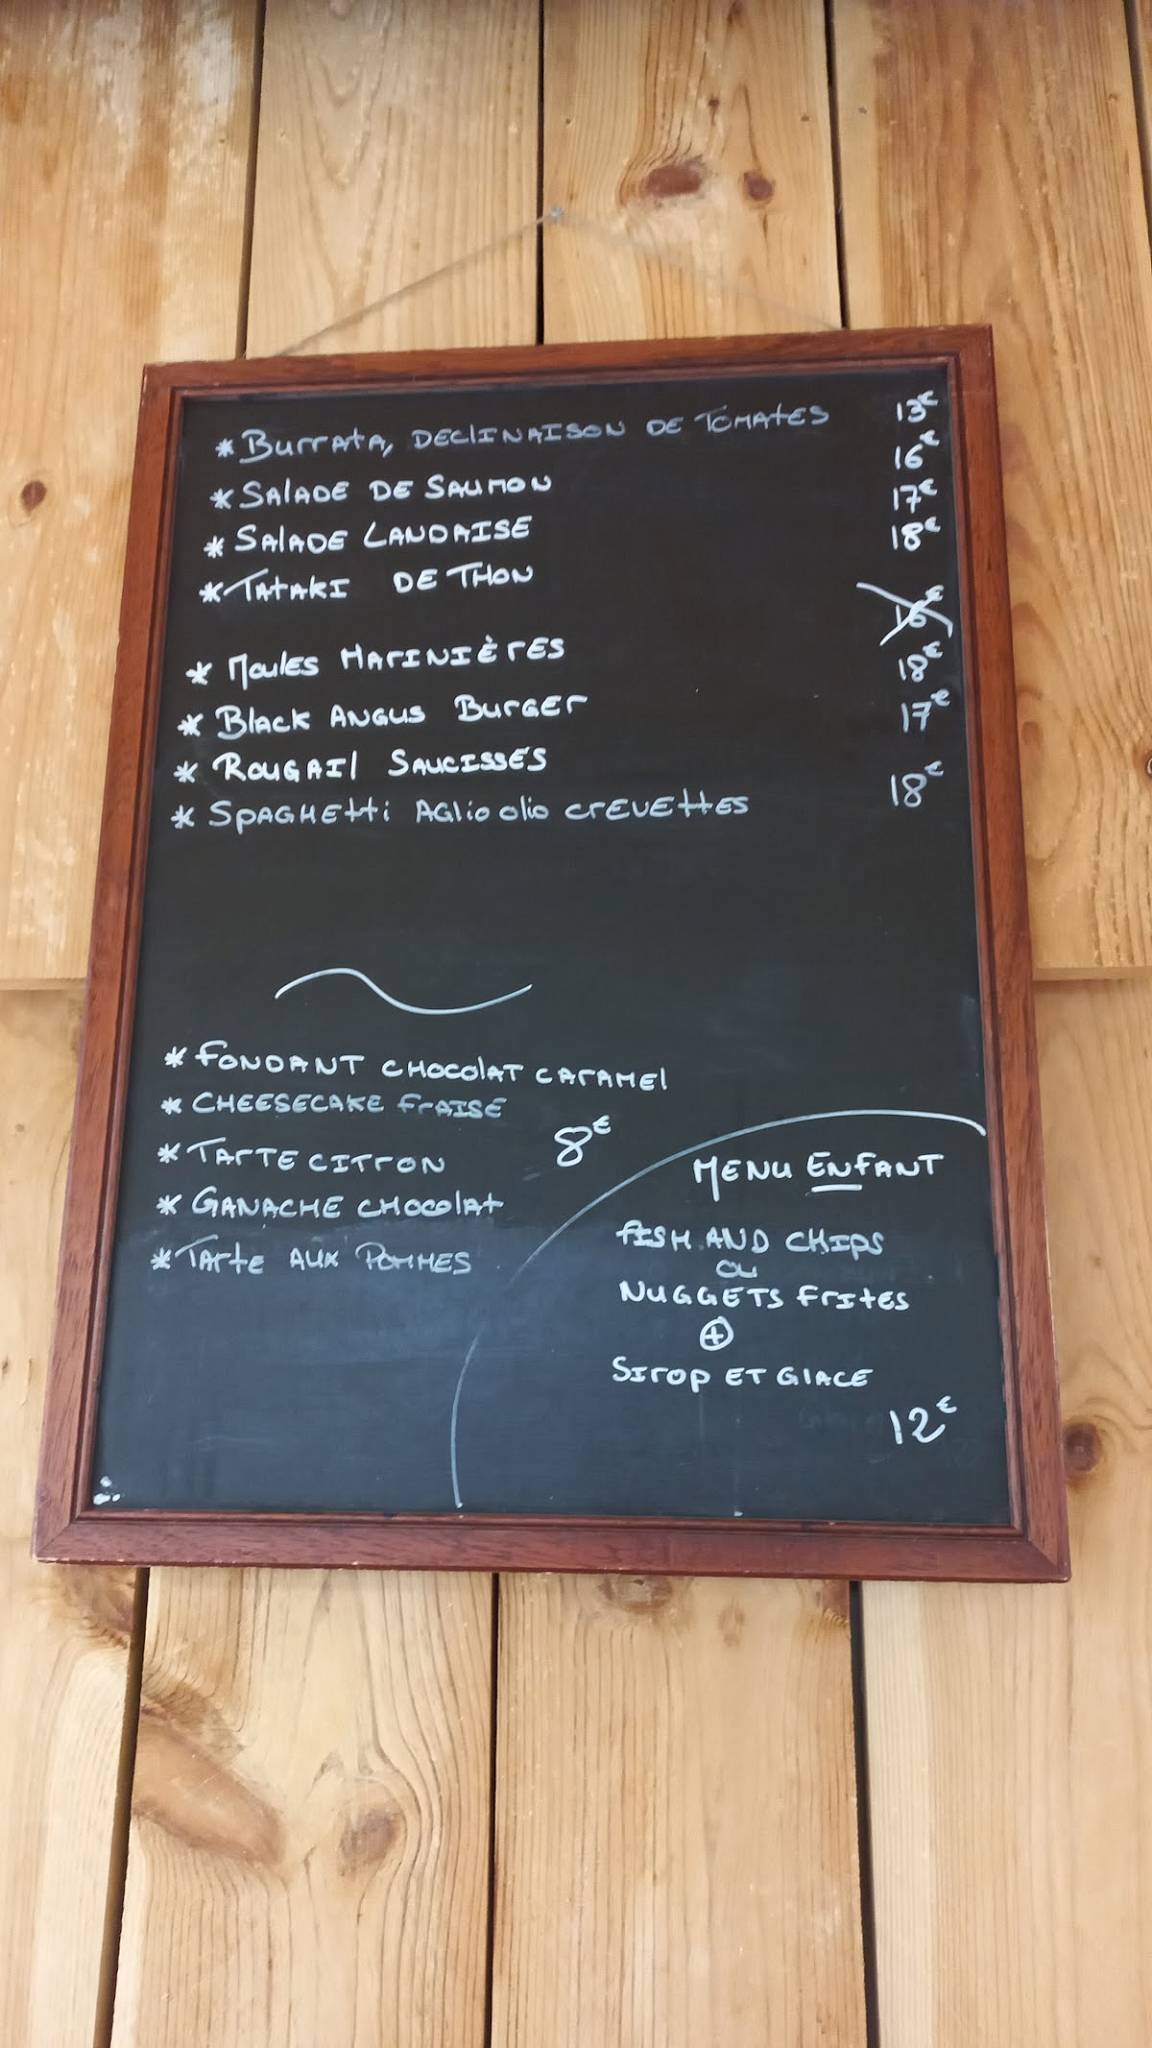 * Burrata, Declinaison de Tomates 13€
* Salade de Saumon 16€
* Salade Landaise 17€
* Tataki de Thon 18€
* Moules Marinières 16€
* Black Angus Burger 18€
* Rougail Saucisses 17€
* Spaghetti Aglio olio crevettes 18€
* Fondant chocolat caramel
* Cheesecake fraise
8€
* Tarte citron
* Ganache chocolat
* Tarte aux Pommes
Menu Enfant
Fish and chips
ou
Nuggets frites
+
Sirop et glace
12€